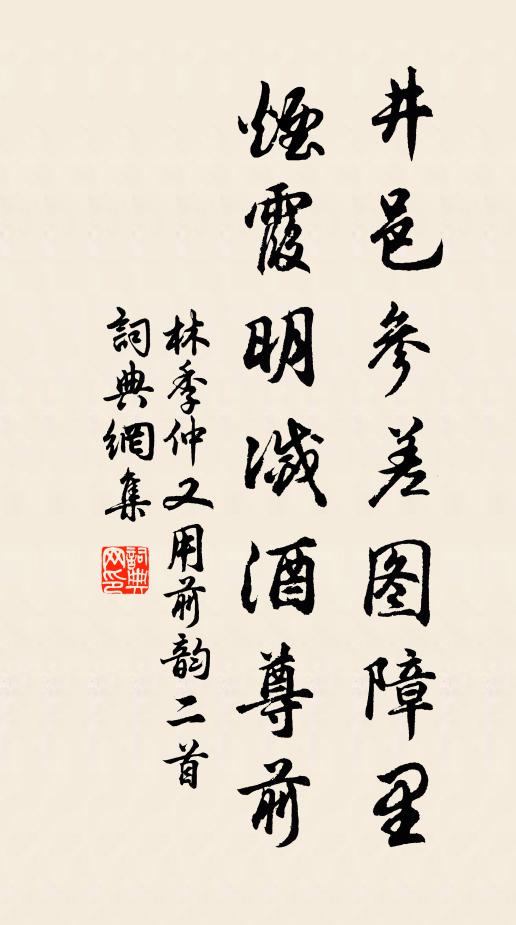 井邑參差图障里
煙霞明滅酒尊前
林季仲又用前韵二首
詞典網集
詞典网印